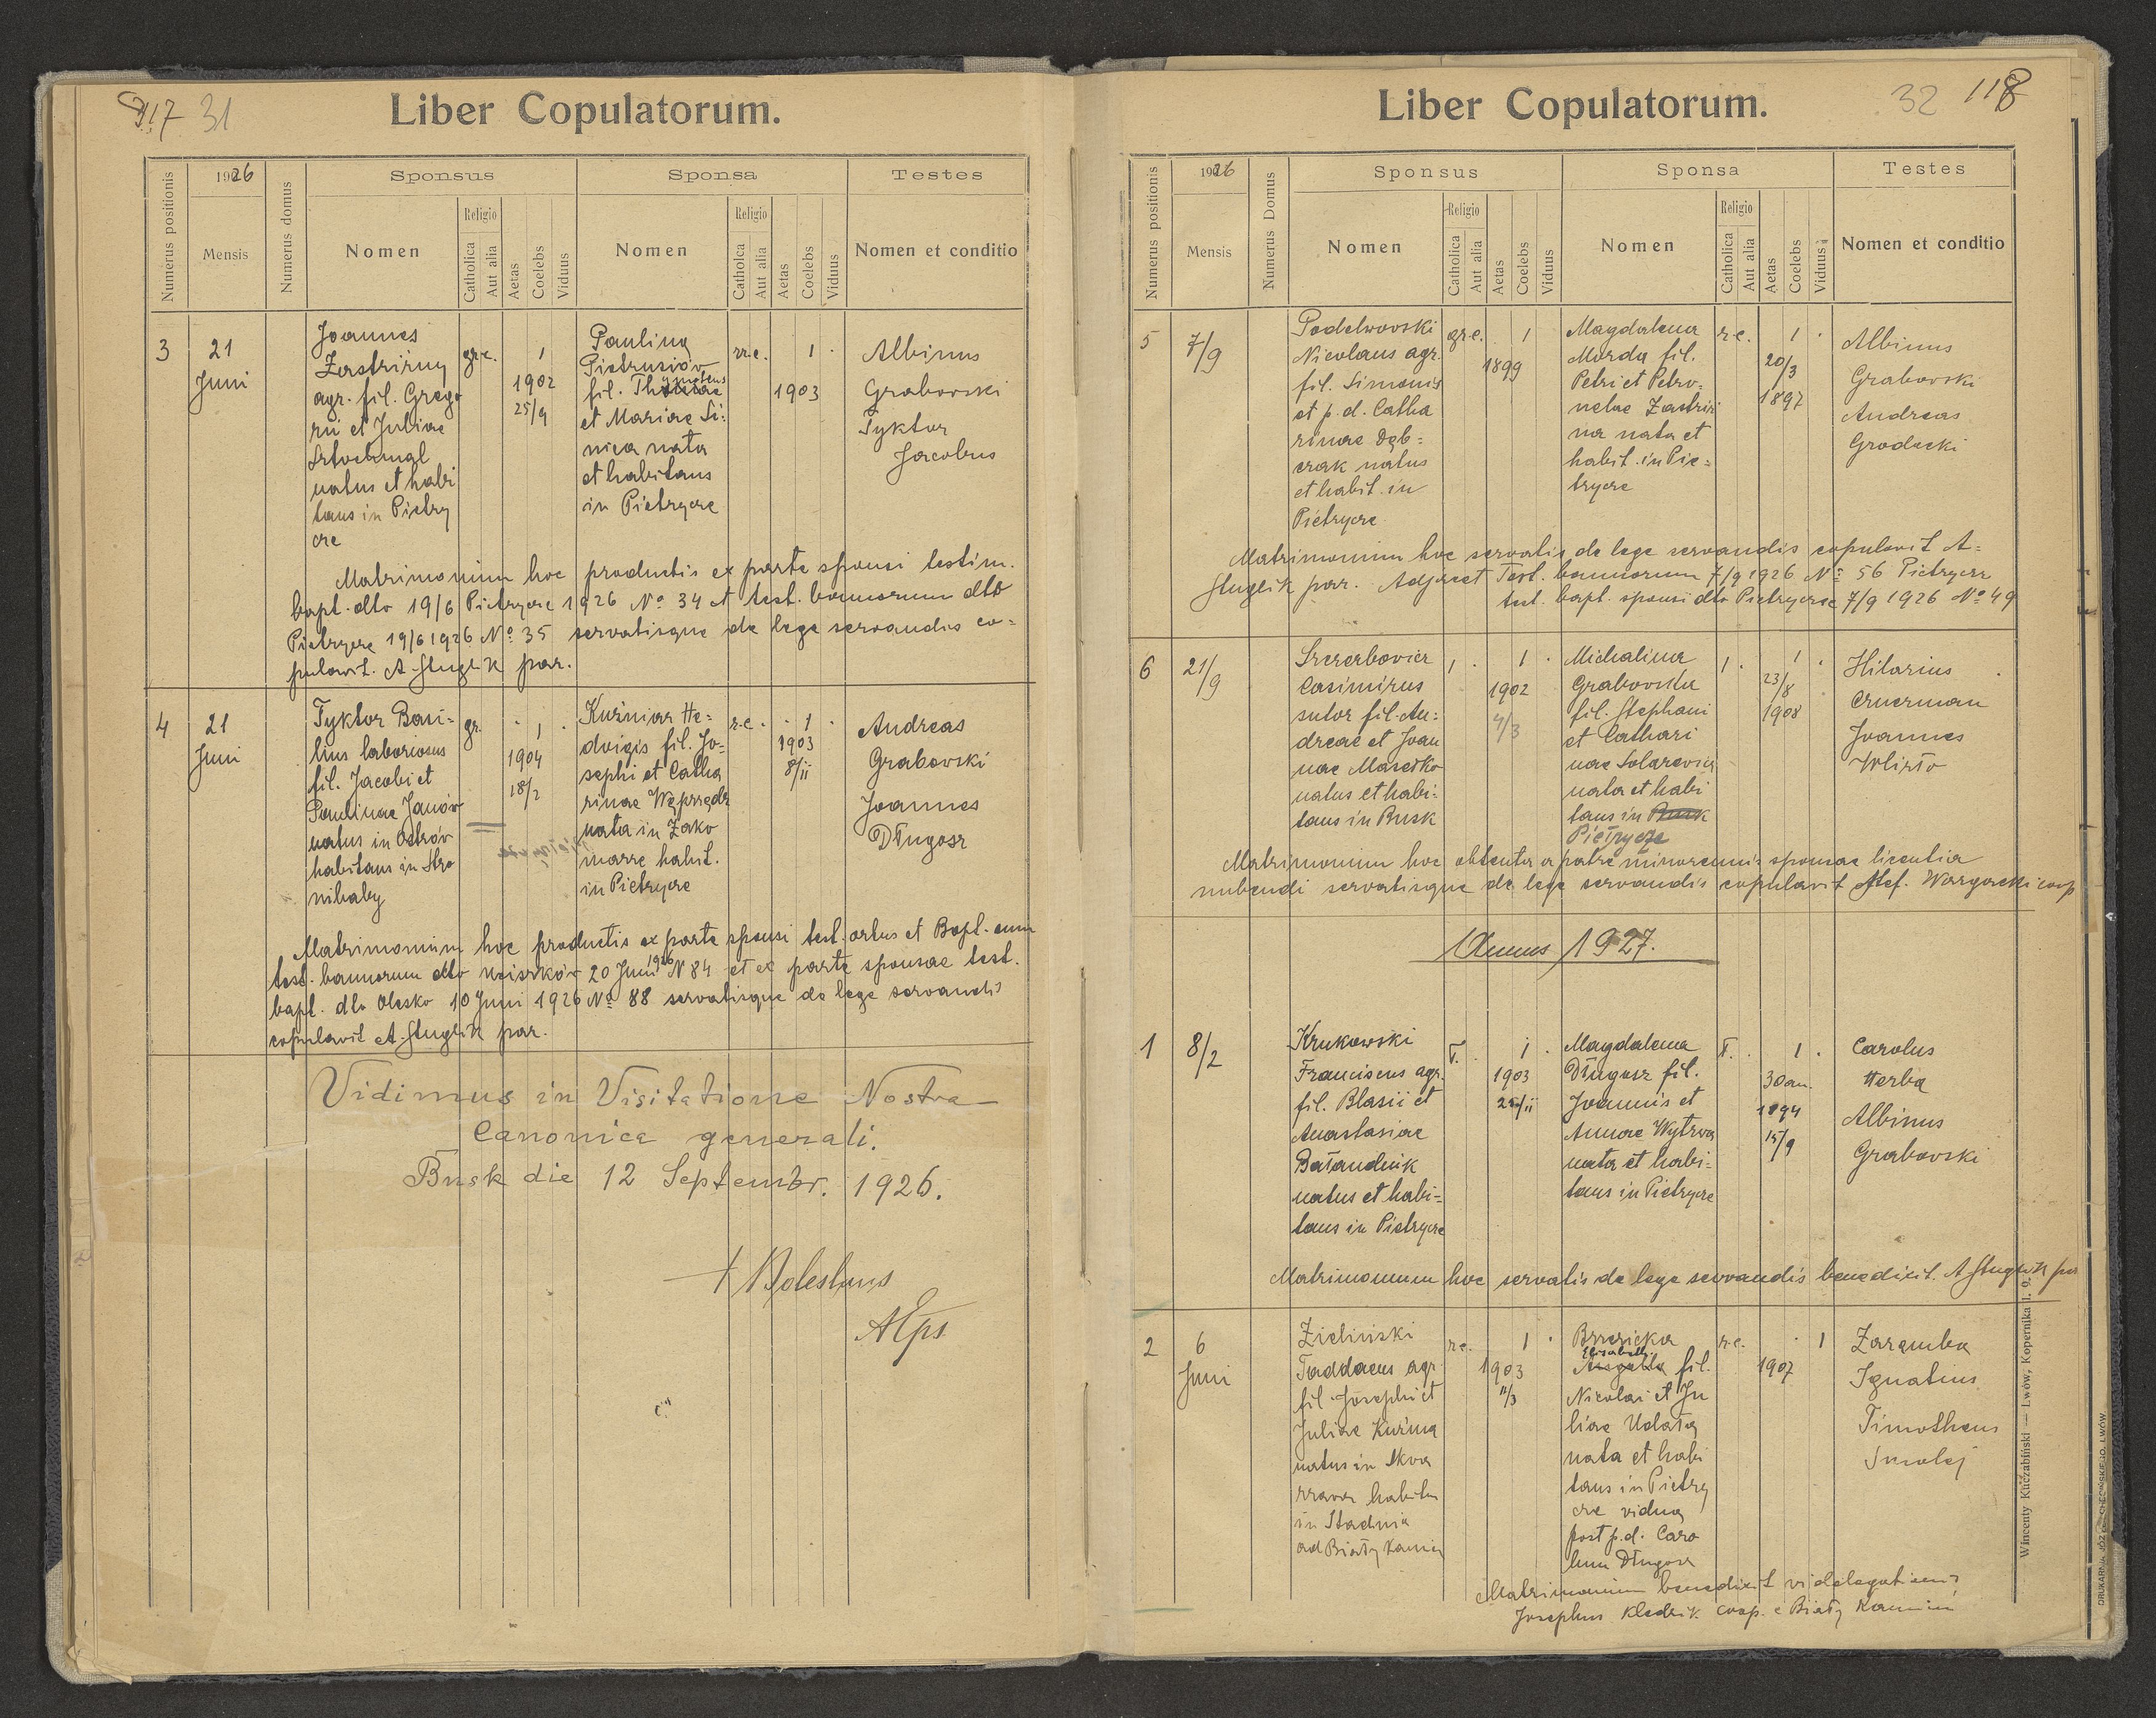 117 31
Liber Copulatorum.
Numerus positionis
1926
Mensis
Numerus domus
Sponsus
Nomen
Religio
Catholica
Aut alia
Aetas
Coelebs
Viduus
Sponsa
Nomen
Religio
Catholca
Aut alia
Aetas
Coelebs
Viduus
Testes
Nomen et conditio
3
21
Juni
Joannes
Zastrizny
agr. fil. Grego
rii et Juliae
natus et habi
tans in Pietry
cze
gr.c.
1
1902
25/9
Paulina
Pietrusiów
fil.
et Mariae Si=
nica nata
et habitans
in Pietrycze
rr.c.
1
1903
Albinus
Grabowski
Tyktor
Jacobus
Matrimonium hoc productis ex parte sponsi testim.
bapt. dto 19/6 Pietrycze 1926 No 34 et test. bannorum dto
Pietrycze 19/6 1926 No 35 servatisque de lege servandis co=
pulavit. A. Stuglik par.
4
21
Juni
Tyktor Basi=
lius laboriosus
fil. Jacobi et
Paulinae Janów
natus in Ostrów
habitans in Stro
nibaby
gr.
1
1904
18/2
Kuźniar He=
dvigis fil. Jo=
sephi et Catha
rinae
nata in Zako
marze habit.
in Pietrycze
r.c.
1
1903
8/ii
Andreas
Grabowski
Joannes
Długosz
Matrimonium hoc productis ex parte sponsi test. ortus et Bapt. cum
test. bannorum dto 20 Juni 1926 N 84 et ex parte sponsae test.
bapt. dto Olesko 10 Juni 1926 No 88 servatisque de lege servandis
copulavit A. Stuglik par.
Vidimus in Visitatione Nostra
Canonica generali.
Busk die 12 Septembr. 1926.
+ Boleslaus
AEps
Liber Copulatorum.
32 118
Numerus positionis
1926
Mensis
Numerus Domus
Sponsus
Nomen
Religio
Catholica
Aut alia
Aetas
Coelebs
Viduus
Sponsa
Nomen
Religio
Catholica
Aut alia
Aetas
Coelebs
Viduus
Testes
Nomen et conditio
5
7/9
Podelwovski
Nicolaus agr.
fil. Simonis
et p.d. Catha
rinae Dąb=
czak natus
et habit. in
Pietrycze
gr.c.
1
1899
Magdalena
Morda fil.
Petri et Petro=
nelae Zastriż
na nata et
habit. in Pie=
trycze
r.c.
1
20/3
1897
Albinus
Grabowski
Andreas
Grodecki
Matrimonium hoc servatis de lege servandis copulavit A.
Stuglik par. Adjacet Test. bannorum 7/9 1926 No 56 Pietrycze
test. bapt. sponsi dto Pietrycze 7/9 1926 No 49
6
21/9
Szczerbovicz
Casimirus
sutor fil. An=
dreae et Joan
nae Masetko
natus et habi=
tans in Busk
1
1
1902
4/3
Michalina
Grabowska
fil. Stephani
et Cathari
nae Solarevicz
nata et habi
tans in Busk
Pietrycze
1
1
23/8
1908
Hilarius
Czuczman
Joannes
Matrimonium hoc obtenta a patre minorennis sponsae licentia
nubendi servatisque de lege servandis copulavit Stef. Wargacki coop
Annus 1927.
1
8/2
Krukowski
Franciscus agr.
fil. Blasii et
Anastasiae
Bałanduik
natus et habi=
tans in Pietrycze
r.
1
1903
25/ii
Magdalena
Długosz fil.
Joannis et
Annae Wytrwa
nata et habi=
tans in Pietrycze
r.
1
30 an.
1894
15/9
Carolus
Herba
Albinus
Grabowski
Matrimonium hoc servatis de lege servandis benedixit. A Stuglik par
2
6
Juni
Zieliński
Taddaeus agr.
fil. Josephi et
Juliae Kuźma
natus in Skwa
rzawa habitu
in Stadnia
ad Biały Kamień
r.c.
1
1903
11/3
Brzezicka
Elisabetha
fil.
Nicolai et Ju
liae Udała
nata et habi
tans in Pietry
cze vidua
post p.d. Caro
lum Długosz
r.c.
1
1907
Zaremba
Ignatius
Timotheus
Smolej
Matrimonium benedixit vi delegationis
Josephus Kledzik coop. e Biały Kamień
Wincenty Kuczabiński — Lwów, Kopernika l. 9.